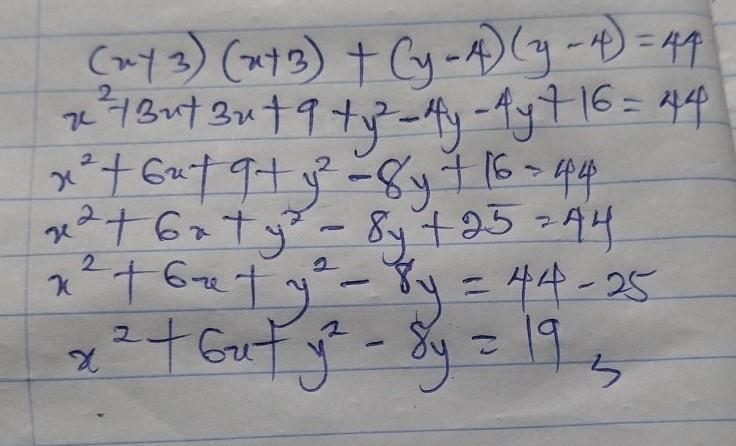 (x+3)(x+3) + (y-4)(y-4) = 44
x²+3x+3x+9+y²-4y-4y+16=44
x²+6x+9+y²-8y+16=44
x²+6x+y²-8y+25=44
x²+6x+y²-8y=44-25
x²+6x+y²-8y=19